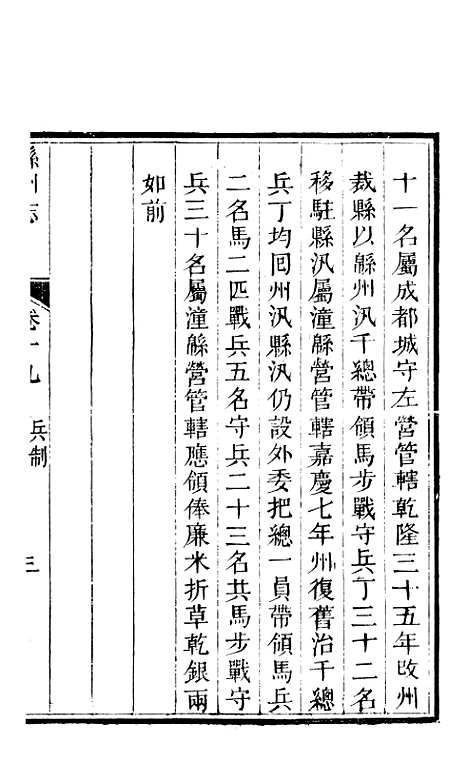 十一名屬成都城守左營管轄乾隆三十五年改州
裁縣以緜州汛千總帶領馬步戰守兵丁三十二名
移駐縣汛屬潼緜營管轄嘉慶七年州復舊治千總
兵丁均囘州汛縣汛仍設外委把總一員帶領馬兵
二名馬二匹戰兵五名守兵二十三名共馬步戰守
兵三十名屬潼緜營管轄應領俸廉米折草乾銀兩
如前
緜州志
卷十九 兵制
三